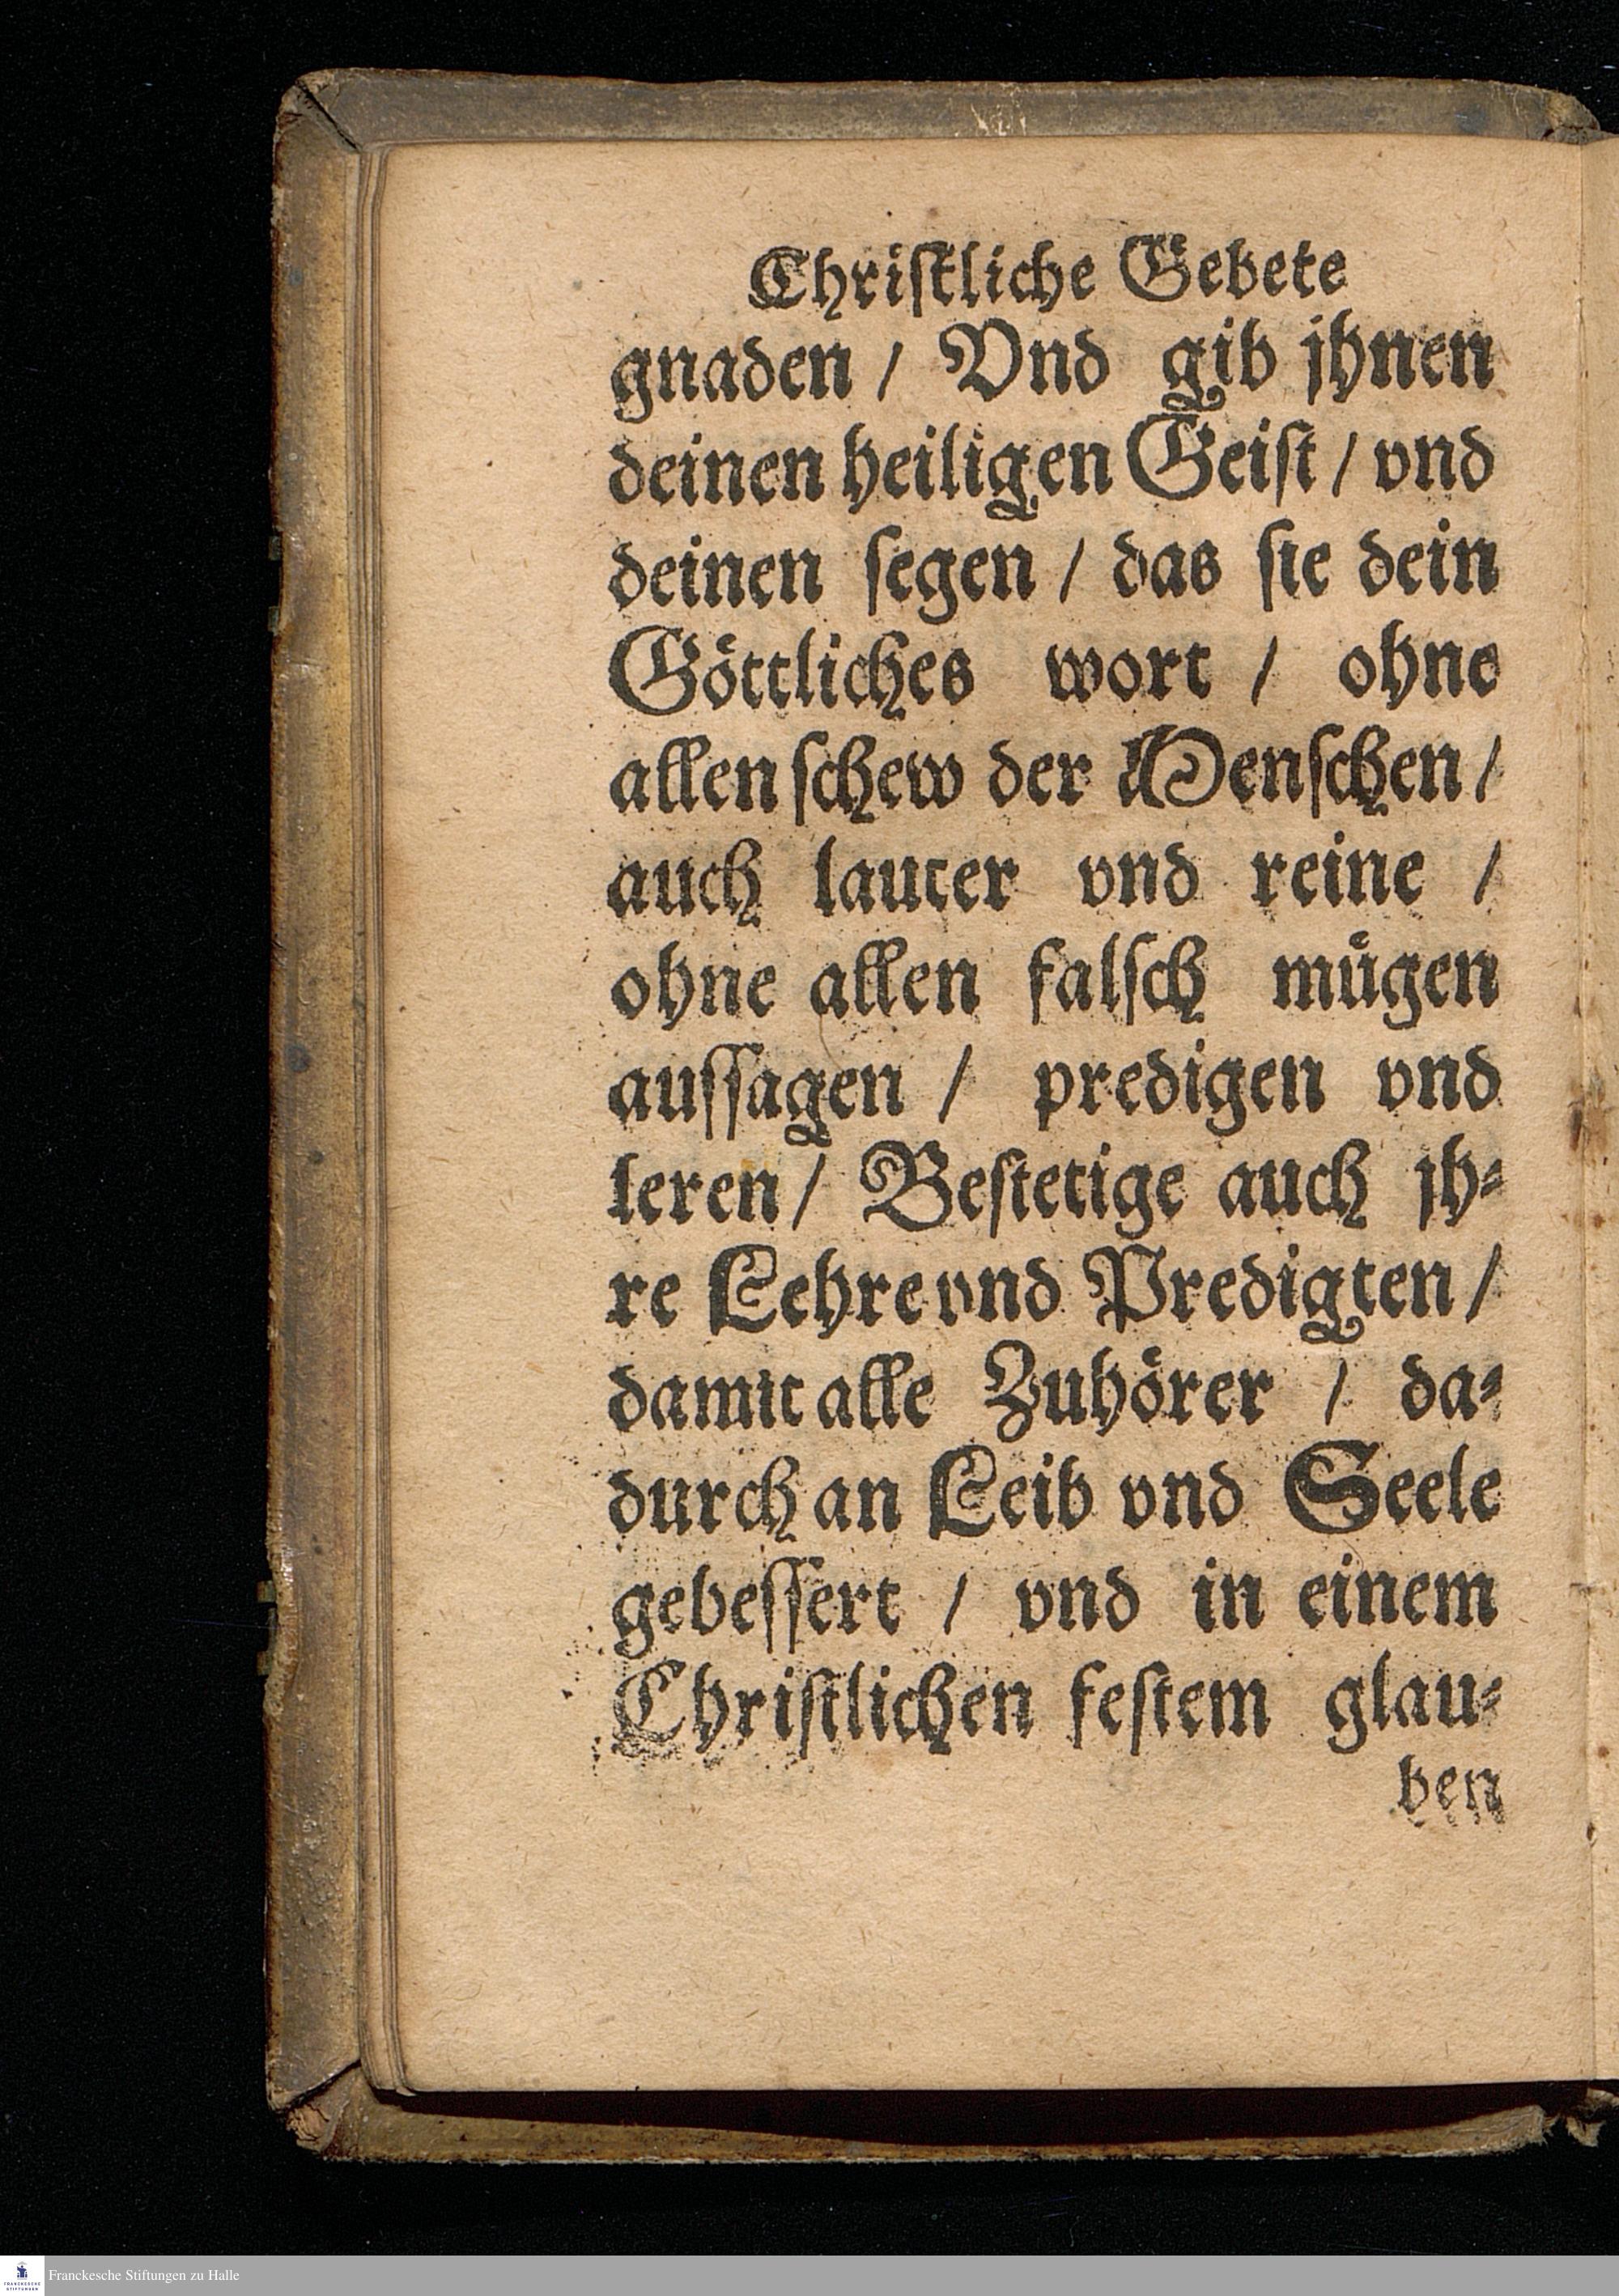 Chriſtliche Gebete
gnaden / Vnd gib jhnen
deinen heiligen Geiſt / vnd
deinen ſegen / das ſie dein
Göttliches wort / ohne
allen ſchew der Menſchen /
auch lauter vnd reine /
ohne allen falſch mügen
auſſagen / predigen vnd
leren / Beſtetige auch jh⸗
re Lehre vnd Predigten /
damit alle Zuhörer / da⸗
durch an Leib vnd Seele
gebeſſert / vnd in einem
Chriſtlichen feſtem glau⸗
ben
FRANCKESCHE STIFTUNGEN
Franckesche Stiftungen zu Halle